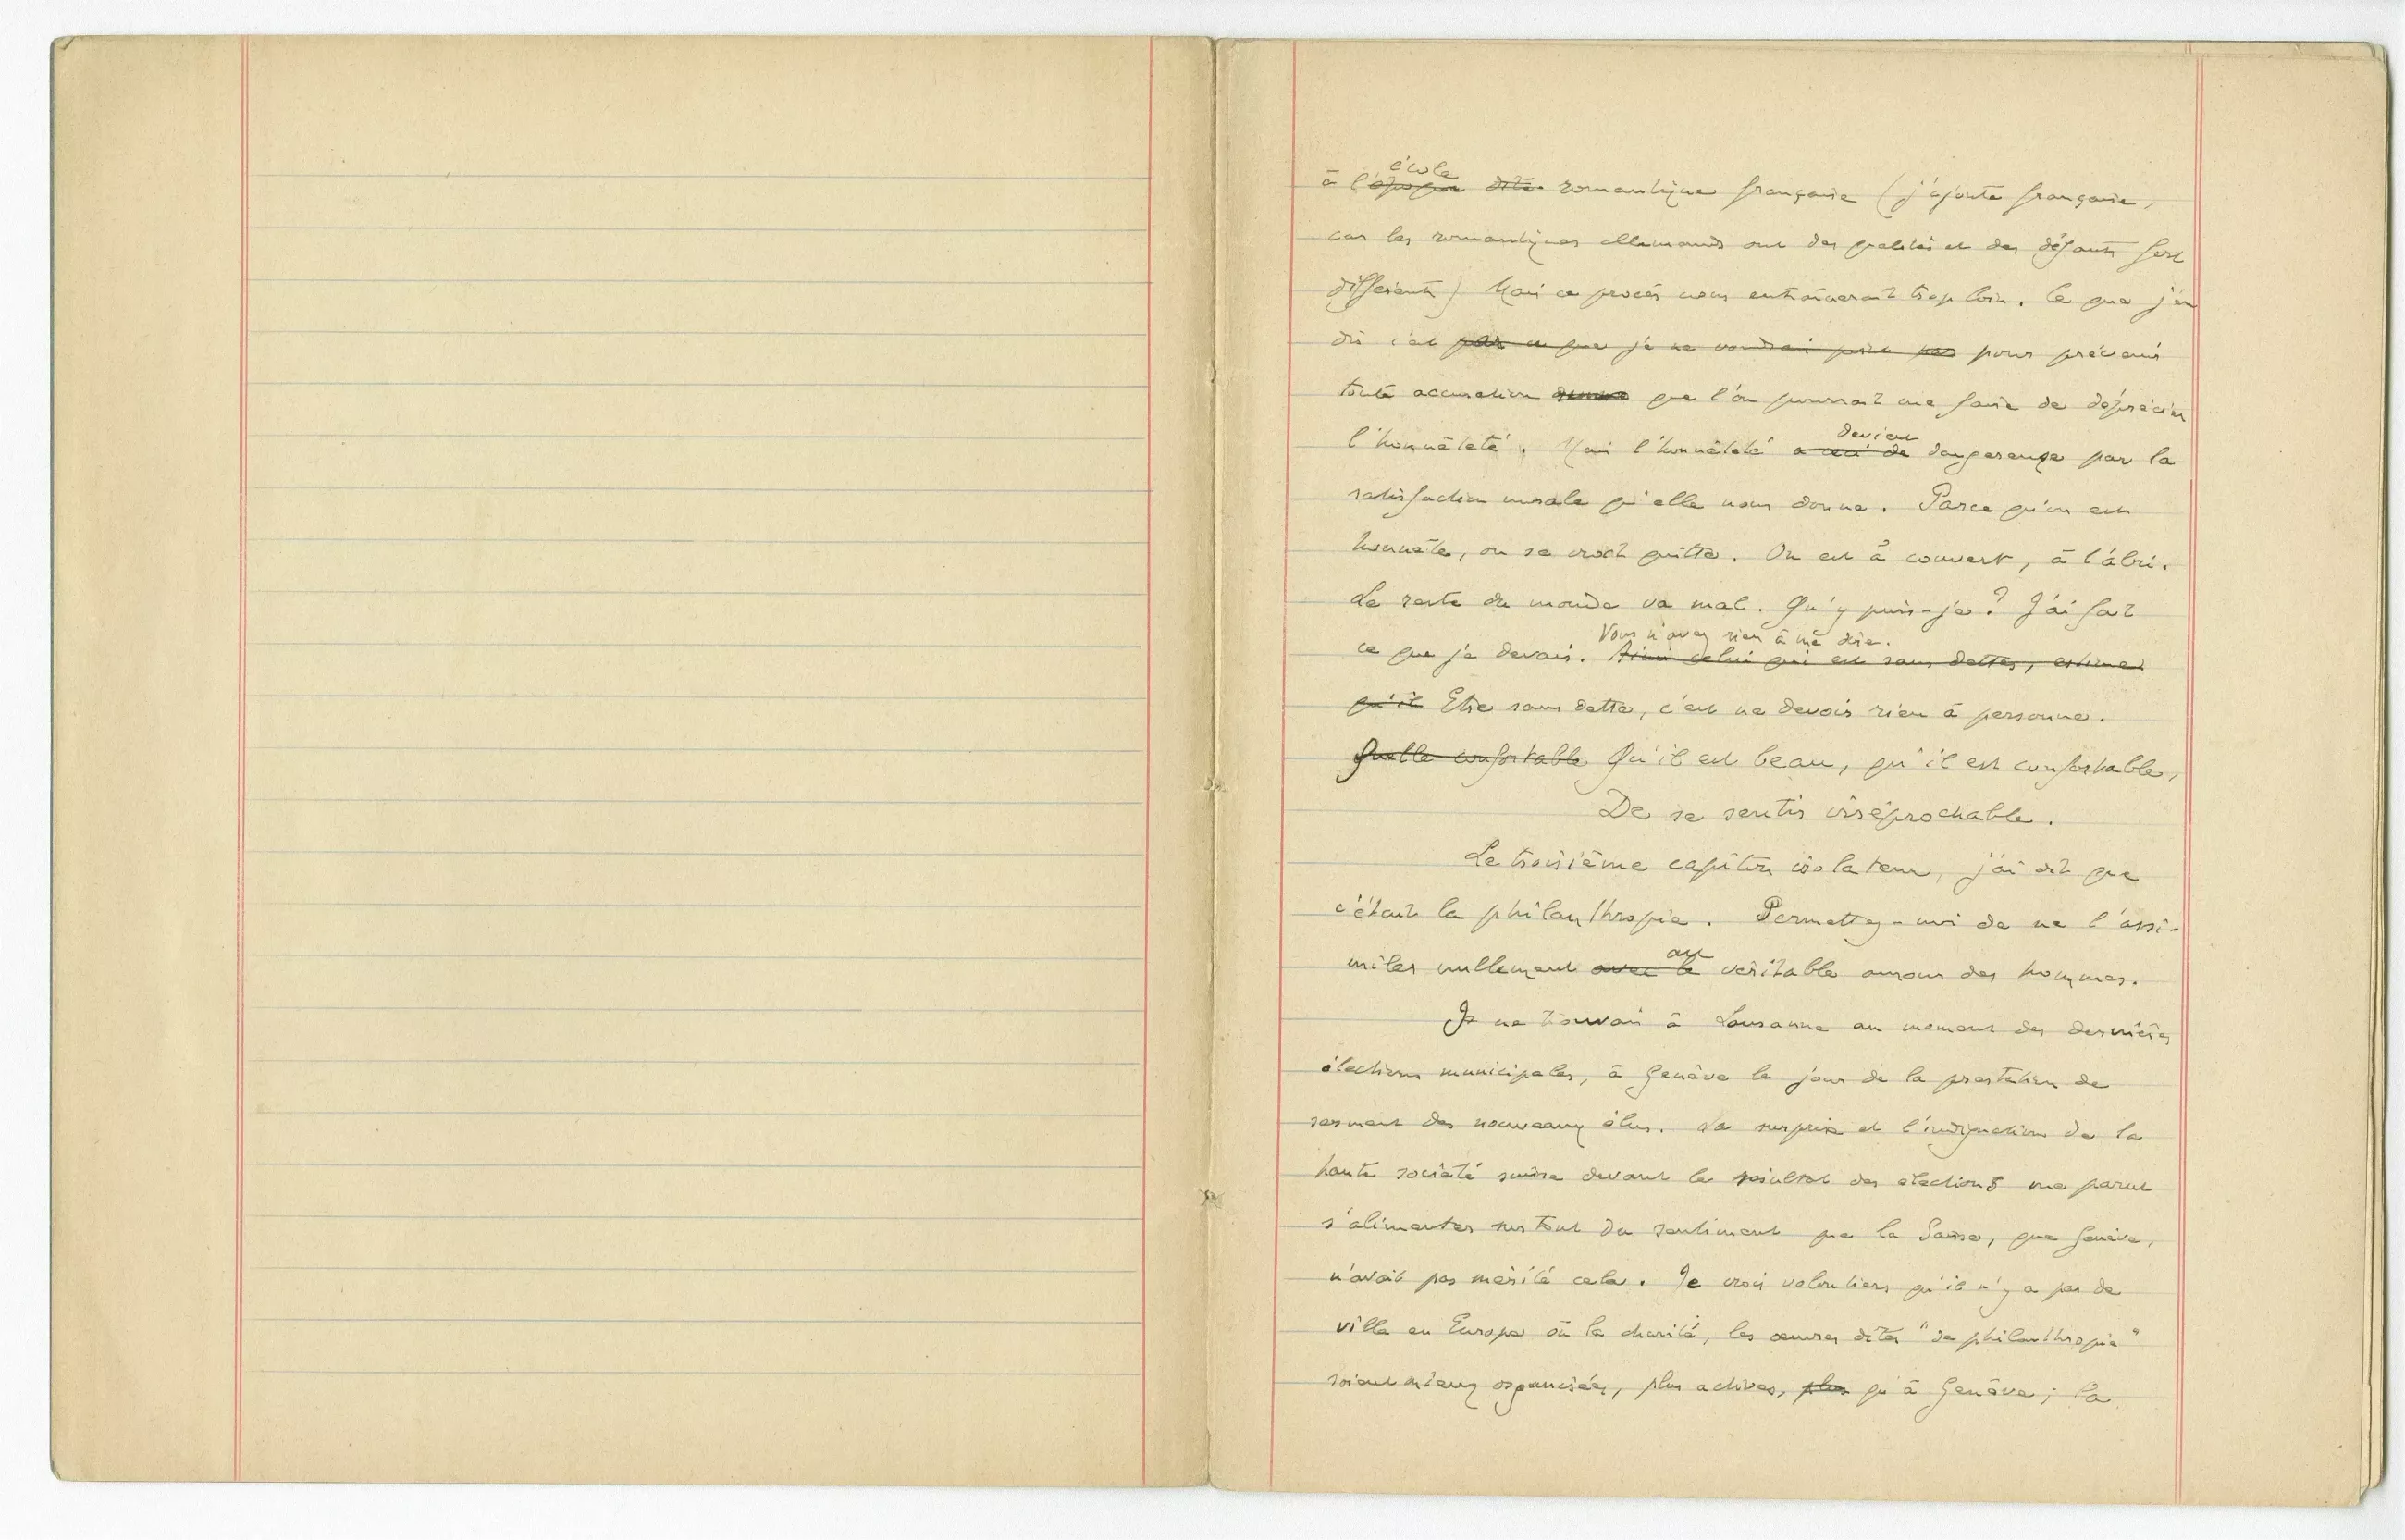 école
à l'époque dite romantique française (j'ajoute française,
car les romantiques allemands ont des qualités et des défauts fort
différents) Mais ce procès nous entraînerait trop loin. Ce que j'en
dis c'est par ce que je ne voudrai pas pour prévenir
toute accusation que l'on pourrait me faire de déprécier
devient
l'honnêteté. Mais l'honnêteté a ceci de dangereuse par la
satisfaction morale qu'elle nous donne. Parce qu'on est
honnête, on se croit quitte. On est à couvert, à l'abri.
Le reste du monde va mal. Qu'y puis-je? J'ai fait
Vous n'avez rien à me dire.
ce que je devais. Ainsi celui qui est sans dettes, estime
qu'il Etre sans dette, c'est ne devoir rien à personne.
Quelle confortable Qu'il est beau, qu'il est confortable,
De se sentir irréprochable.
Le troisième capiton isolateur, j'ai dit que
c'était la philanthropie. Permettez-moi de ne l'assi-
au
miler nullement avec le véritable amour des hommes.
Je me trouvais à Lausanne au moment des dernières
élections municipales, à Genève le jour de la prestation de
serment des nouveaux élus. La surprise et l'indignation de la
haute société suisse devant le résultat des élections me parut
s'alimenter surtout du sentiment que la Suisse, que Genève,
n'avait pas mérité cela. Je crois volontiers qu'il n'y a pas de
ville en Europe où la charité, les œuvres dites "de philanthropie"
soient mieux organisées, plus actives, plus qu'à Genève; la